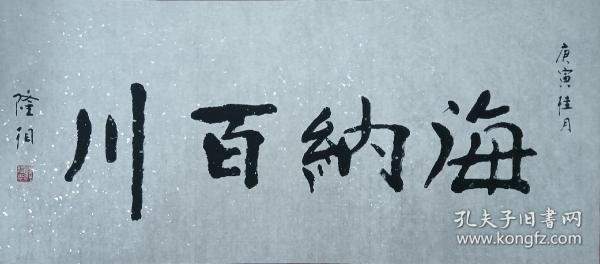 庚寅陆月
海纳百川
孔夫子旧書网
www.kongfz.com